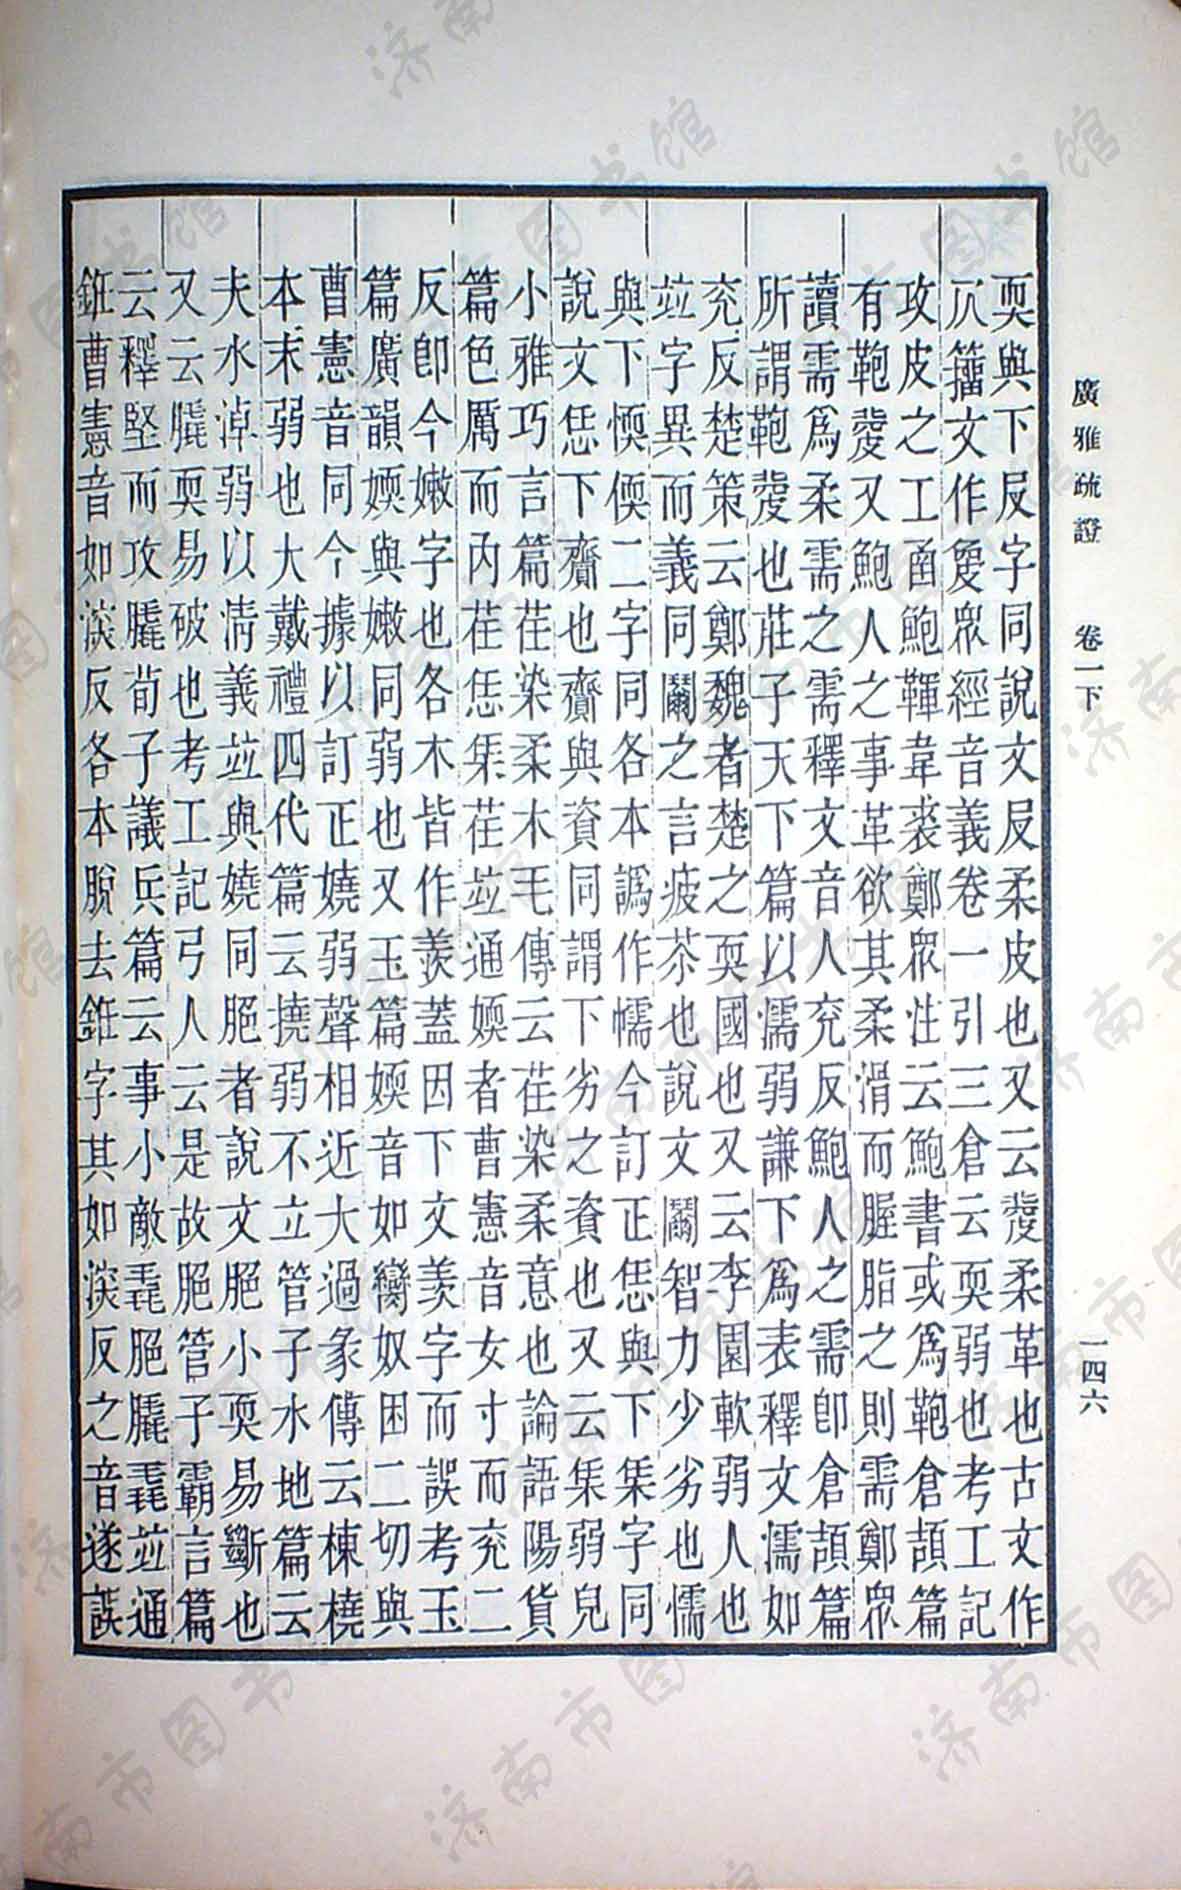 耎與下㞋字同說文㞋柔皮也又云㼱柔革也古文作
籒文作㼱眾經音義卷一引三倉云耎弱也考工記
攻皮之工函鮑韗韋裘鄭眾注云鮑書或爲鞄倉頡篇
有鞄㼱又鮑人之事革欲其柔滑而腥脂之則需鄭眾
讀需爲柔需之需釋文音人兖反鮑人之需卽倉頡篇
所謂鞄㼱也莊子天下篇以濡弱謙下爲表釋文濡如
兖反楚策云鄭魏者楚之耎國也又云李園軟弱人也
竝字異而義同䦵之言疲苶也說文䦵智力少劣也懦
與下愞偄二字同各本譌作懦今訂正恁與下栠字同
說文恁下齎也齎與資同謂下劣之資也又云栠弱皃
小雅巧言篇荏染柔木毛傳云荏染柔意也論語陽貨
篇色厲而內荏恁栠荏竝通媆者曹憲音女寸而兖二
反卽今嫩字也各木皆作羨蓋因下文羨字而誤考玉
篇廣韻媆與嫩同弱也又玉篇媆音如臠奴困二切與
曹憲音同今據以訂正嬈弱聲相近大過彖傳云棟橈
本末弱也大戴禮四代篇云撓弱不立管子水地篇云
夫水淖弱以情義竝與嬈同脃者說文脃小耎易斷也
又云膬耎易破也考工記弓人云是故脃管子霸言篇
云釋堅而攻膬荀子議兵篇云事小敵毳脃膬毳竝通
銋曹憲音如淡反各本脫去銋字其如淡反之音遂誤
廣雅疏證 卷一下 一四六